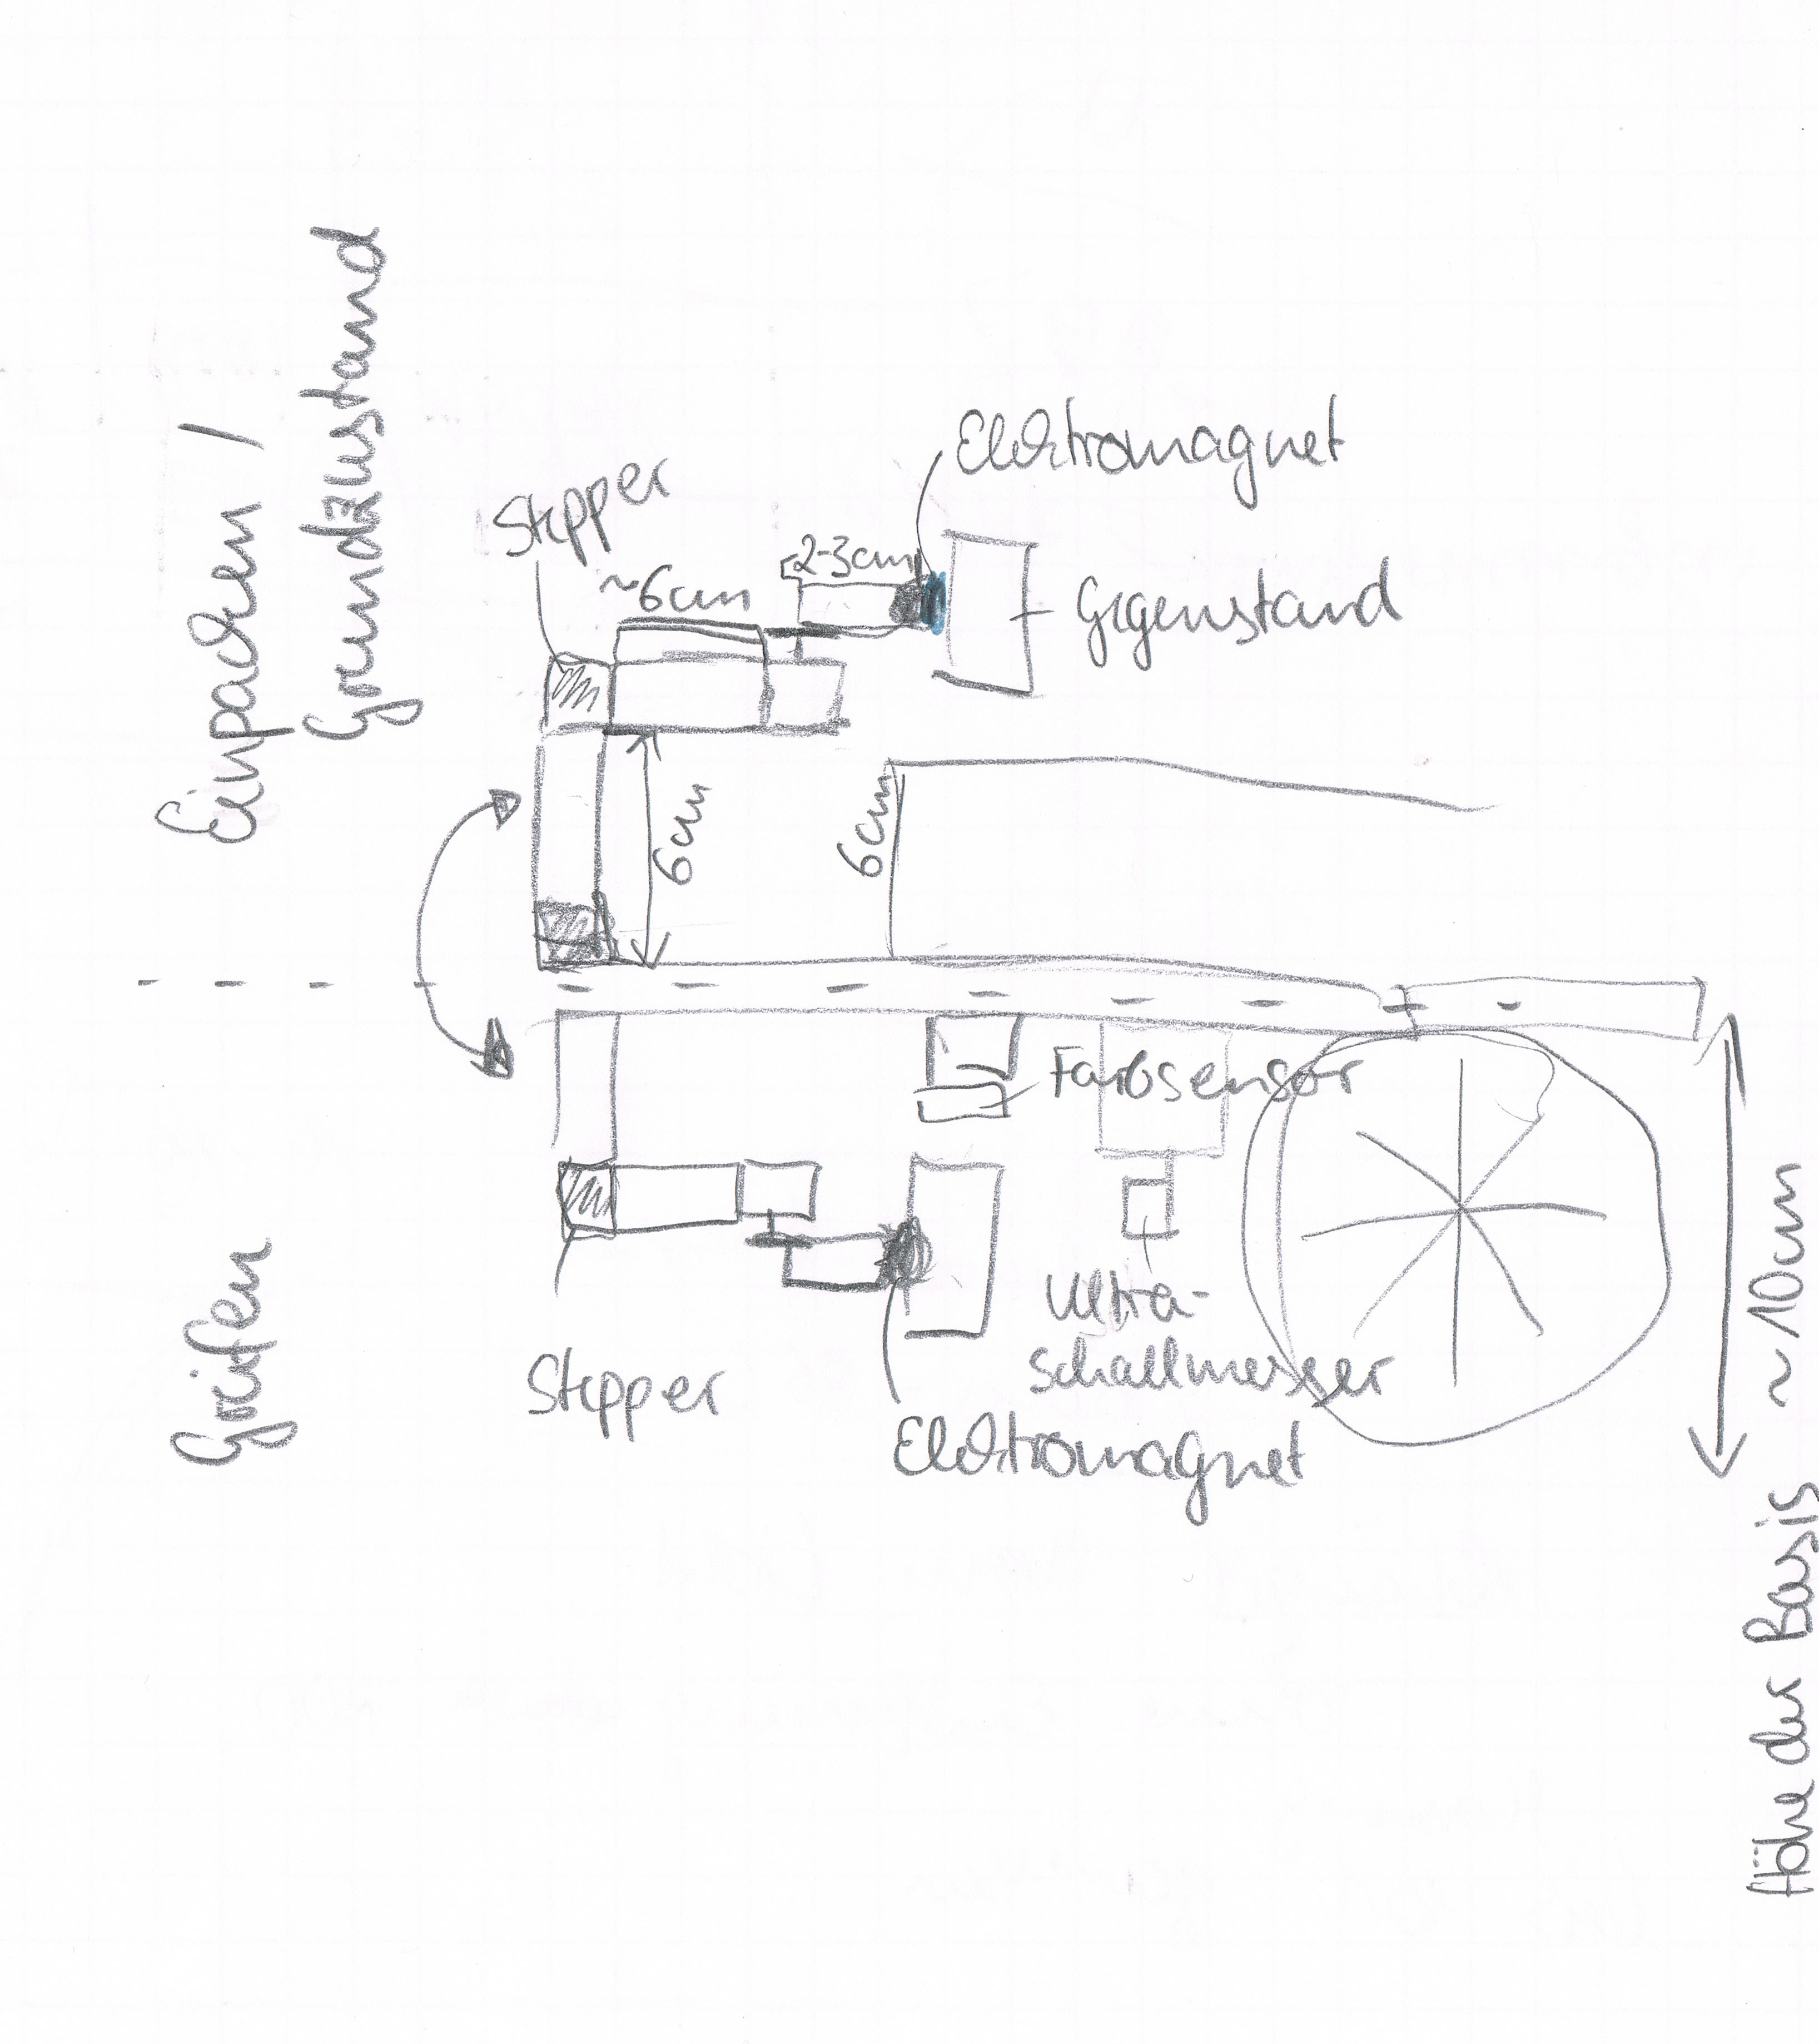 Einpacken /
Grundzustand
Elektromagnet
Stepper
2-3cm
~6cm
Gegenstand
6cm
6cm
Farbsensor
Greifen
Ultra-
schallmesser
Stepper
Elektromagnet
~10cm
Höhe der Basis